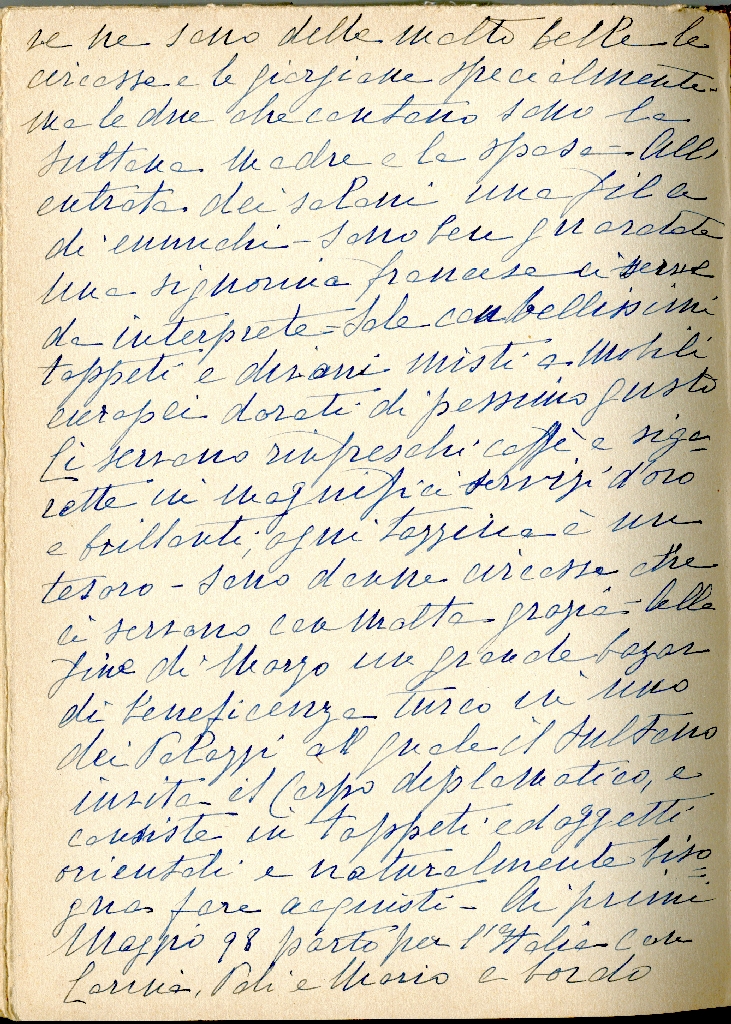 se ne sono delle molto belle le
circasse e le giorgiane specialmente -
ma le due che contano sono la
Sultana madre e la sposa - All'
entrata dei saloni una fila
di eunuchi - sono ben guardate
una signorina francese ci serve
da interprete - Sale con bellissimi
tappeti e divani misti a mobili
europei dorati di pessimo gusto
Ci servono rinfreschi caffè e siga=
rette in magnifici servizi d'oro
e brillanti; ogni tazzina è un
tesoro - sono donne circasse che
ci servono con molta grazia - Alla
fine di Marzo un grande bazar
di beneficenza turco in uno
dei Palazzi al quale il Sultano
invita il Corpo diplomatico, e
consiste in tappeti ed oggetti
orientali e naturalmente biso=
gna fare acquisti - Ai primi
Maggio 98 parto per l'Italia con
e Mario a bordo